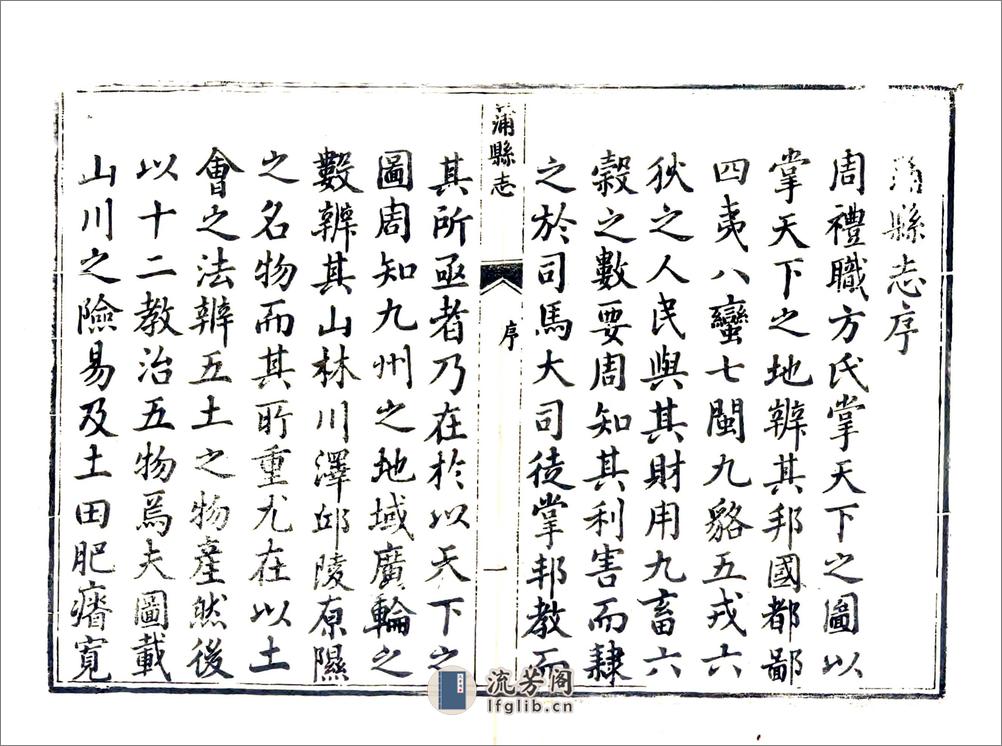 蒲縣志序
周禮職方氏掌天下之圖以
掌天下之地辨其邦國都鄙
四夷八蠻七閩九貉五戎六
狄之人民與其財用九畜六
穀之數要周知其利害而隸
之於司馬大司徒掌邦教而
蒲縣志
序
一
其所亟者乃在於以天下之
圖周知九州之地域廣輪之
數辨其山林川澤邱陵原隰
之名物而其所重尤在以土
會之法辨五土之物產然後
以十二教治五物焉夫圖載
山川之險易及土田肥瘠寬
流芳阁
lfglib.cn